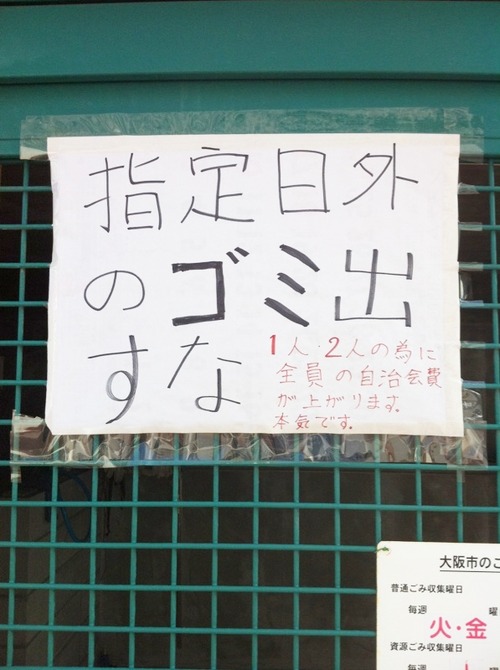 指定日外
のゴミ出
すな
1人・2人の為に
全員の自治会費
が上がります。
本気です。
大阪市のご
普通ごみ収集曜日
毎週 曜
火・金
資源ごみ収集曜日
毎週